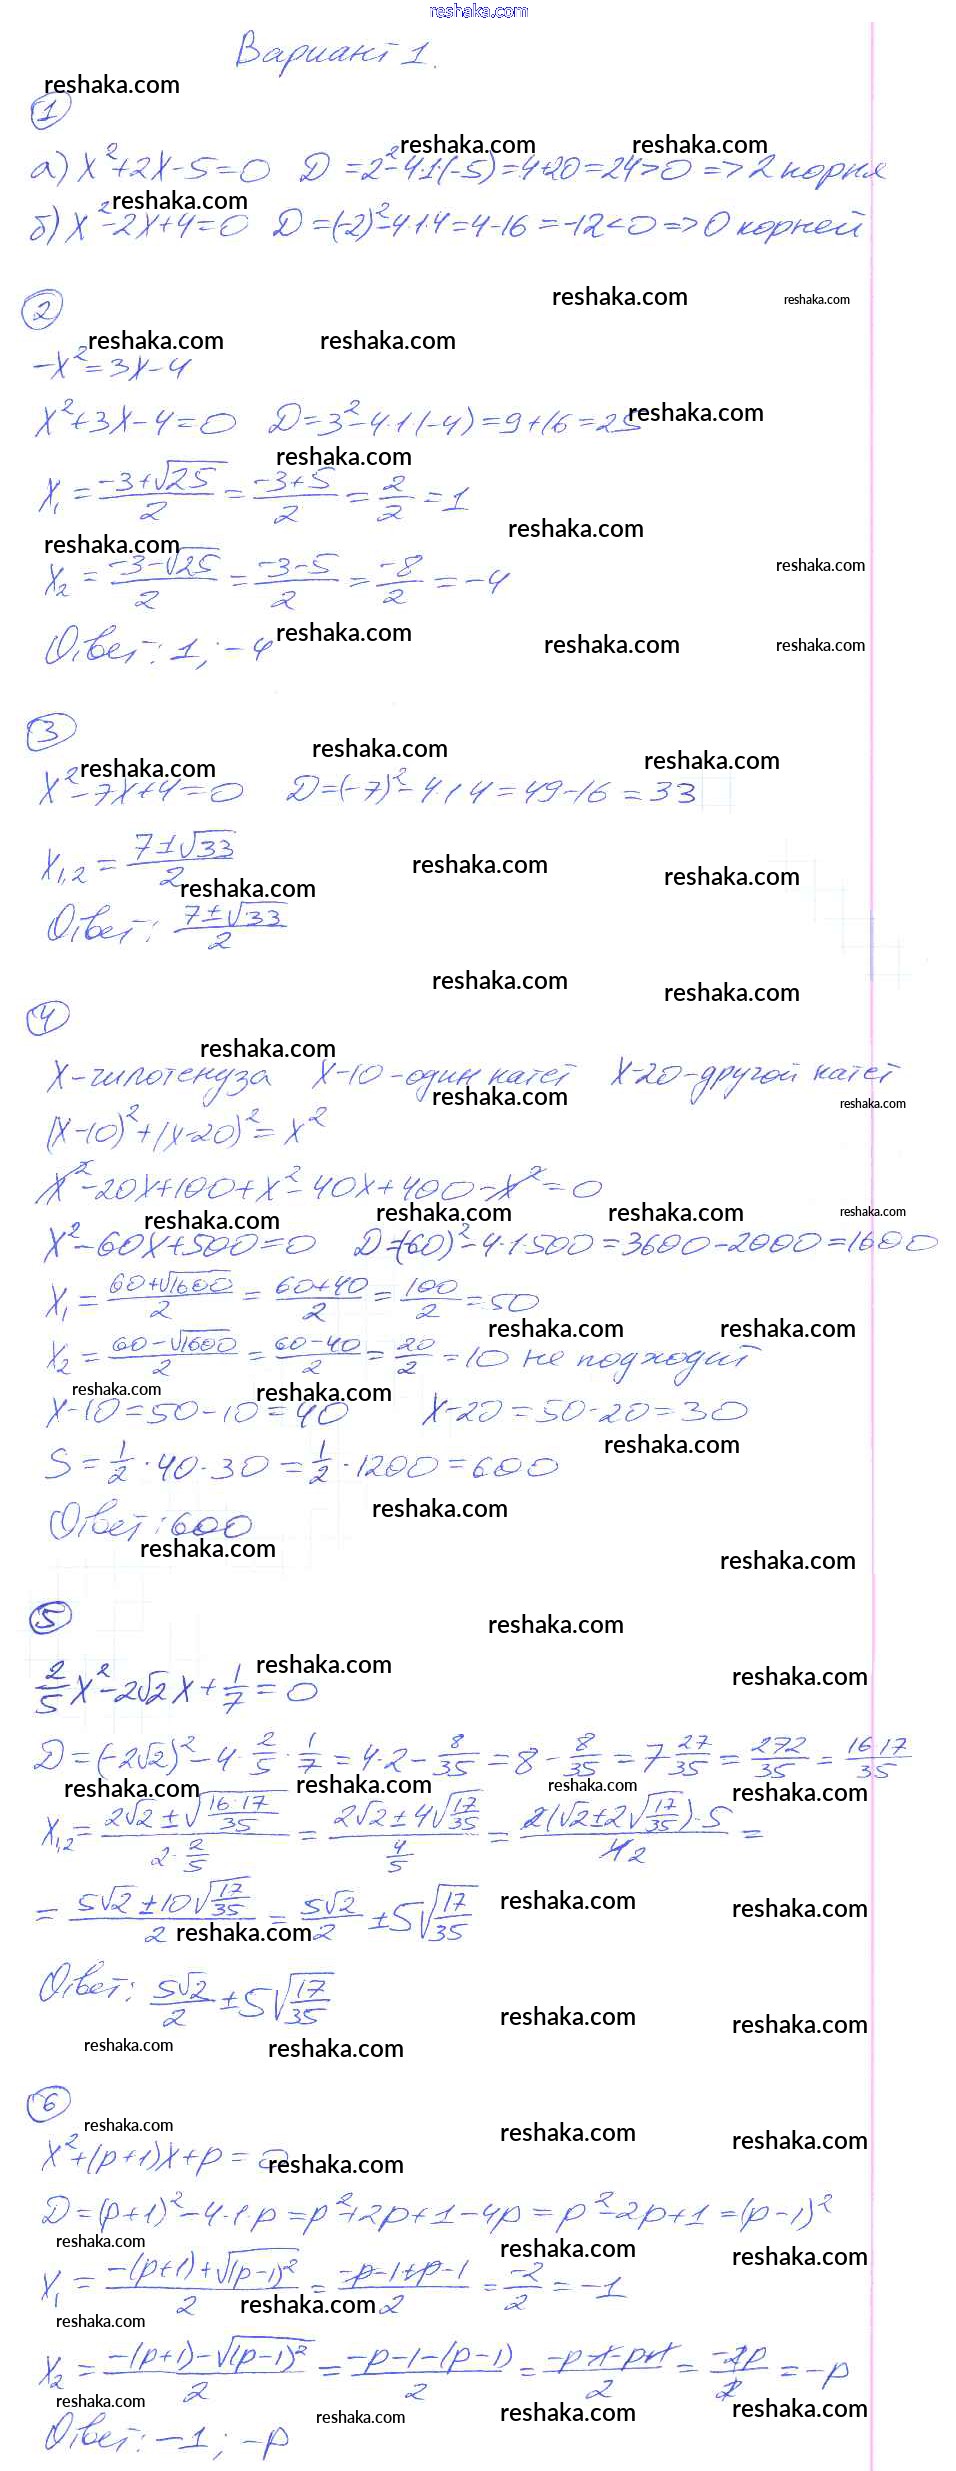 reshaka.com
Вариант 1.
reshaka.com
1
reshaka.com reshaka.com
а) x²+2x-5=0 D=2²-4·1·(-5)=4+20=24>0 => 2 корня
reshaka.com
б) x²-2x+4=0 D=(-2)²-4·1·4=4-16=-12<0 => 0 корней
reshaka.com reshaka.com
2
reshaka.com reshaka.com
-x²=3x-4
x²+3x-4=0 D=3²-4·1·(-4)=9+16=25 reshaka.com
reshaka.com
x₁=(-3+√25)/2=(-3+5)/2=2/2=1
reshaka.com
reshaka.com reshaka.com
x₂=(-3-√25)/2=(-3-5)/2=-8/2=-4
Ответ: 1; -4 reshaka.com reshaka.com reshaka.com
3
reshaka.com reshaka.com reshaka.com
x²-7x+4=0 D=(-7)²-4·1·4=49-16=33
x₁,₂=(7±√33)/2
reshaka.com reshaka.com reshaka.com
Ответ: (7±√33)/2
reshaka.com reshaka.com
4
reshaka.com
x-гипотенуза x-10-один катет x-20-другой катет
reshaka.com reshaka.com
(x-10)²+(x-20)²=x²
x²-20x+100+x²-40x+400-x²=0
reshaka.com reshaka.com reshaka.com reshaka.com
x²-60x+500=0 D=(-60)²-4·1·500=3600-2000=1600
x₁=(60+√1600)/2=(60+40)/2=100/2=50
reshaka.com reshaka.com
x₂=(60-√1600)/2=(60-40)/2=20/2=10 не подходит
reshaka.com reshaka.com
x-10=50-10=40 x-20=50-20=30
reshaka.com
S=1/2·40·30=1/2·1200=600
reshaka.com
Ответ: 600
reshaka.com reshaka.com
5
reshaka.com
reshaka.com reshaka.com
2/5x²-2√2x+1/7=0
D=(-2√2)²-4·2/5·1/7=4·2-8/35=8-8/35=7 27/35=272/35=16·17/35
reshaka.com reshaka.com reshaka.com reshaka.com
x₁,₂=(2√2±√(16·17/35))/(2·2/5)=(2√2±4√(17/35))/(4/5)=(2(√2±2√(17/35))·5)/(4 2)=
=(5√2±10√(17/35))/2=5√2/2±5√(17/35)
reshaka.com reshaka.com reshaka.com
Ответ: 5√2/2±5√(17/35)
reshaka.com reshaka.com
reshaka.com reshaka.com
6
reshaka.com reshaka.com reshaka.com
x²+(p+1)x+p=0 reshaka.com
D=(p+1)²-4·1·p=p²+2p+1-4p=p²-2p+1=(p-1)²
reshaka.com reshaka.com reshaka.com
x₁=(-(p+1)+√(p-1)²)/2=(-p-1+p-1)/2=-2/2=-1
reshaka.com
reshaka.com
x₂=(-(p+1)-√(p-1)²)/2=(-p-1-(p-1))/2=(-p-1-p+1)/2=-2p/2=-p
reshaka.com reshaka.com reshaka.com reshaka.com
Ответ: -1; -p